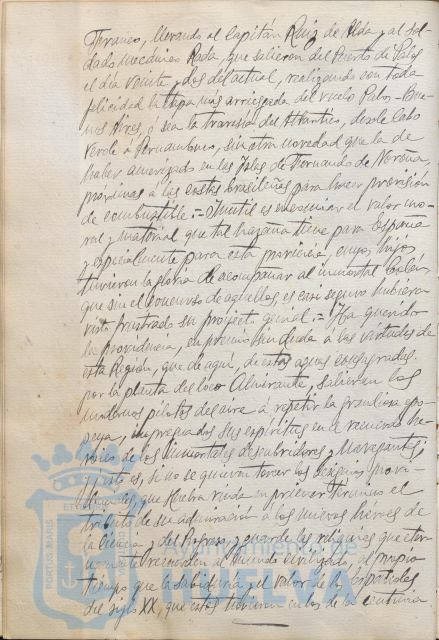 Franco, llevando al Capitán Ruiz de Alda y al sol-
dado mecánico Rada, que salieron del Puerto de Palos
el día veinte y dos del actual, realizando con toda
felicidad la etapa más arriesgada del vuelo Palos-Bue-
nos Aires, ó sea la travesía del Atlántico, desde Cabo
Verde á Pernambuco, sin otra novedad que la de
haber amerizado en las Islas de Fernando de Noroña,
próximas a las costas brasileñas para hacer provisión
de combustible.= Inutil es enunciar el valor mo-
ral y material que tal hazaña tiene para España
y especialmente para esta provincia, cuyos hijos
tuvieron la gloria de acompañar al inmortal Colón,
que sin el concurso de aquellos, es casi seguro hubiera
visto frustrado su proyecto genial.= Ha querido
la providencia, en premio sin duda á las virtudes de
esta Región, que de aquí, de estas aguas consagradas
por la planta del loco Almirante, salieran los
modernos pilotos del aire á repetir la grandiosa epo-
peya, impregnados sus espíritus en el recuerdo he-
roico de los inmortales descubridores y Navegantes
y esto es, si no se quieren torcer los designios provi-
denciales, que Huelva rinda en primer término el
tributo de su admiración á los nuevos héroes de
la Ciencia y del Progreso, y guarde las reliquias que eter-
namente recuerden al Mundo civilizado, al propio
tiempo que la sabiduría y el valor de los españoles
del siglo XX, que estos tuvieron en los de la centuria
Ayuntamiento de
HUELVA
PORTUS MARIS